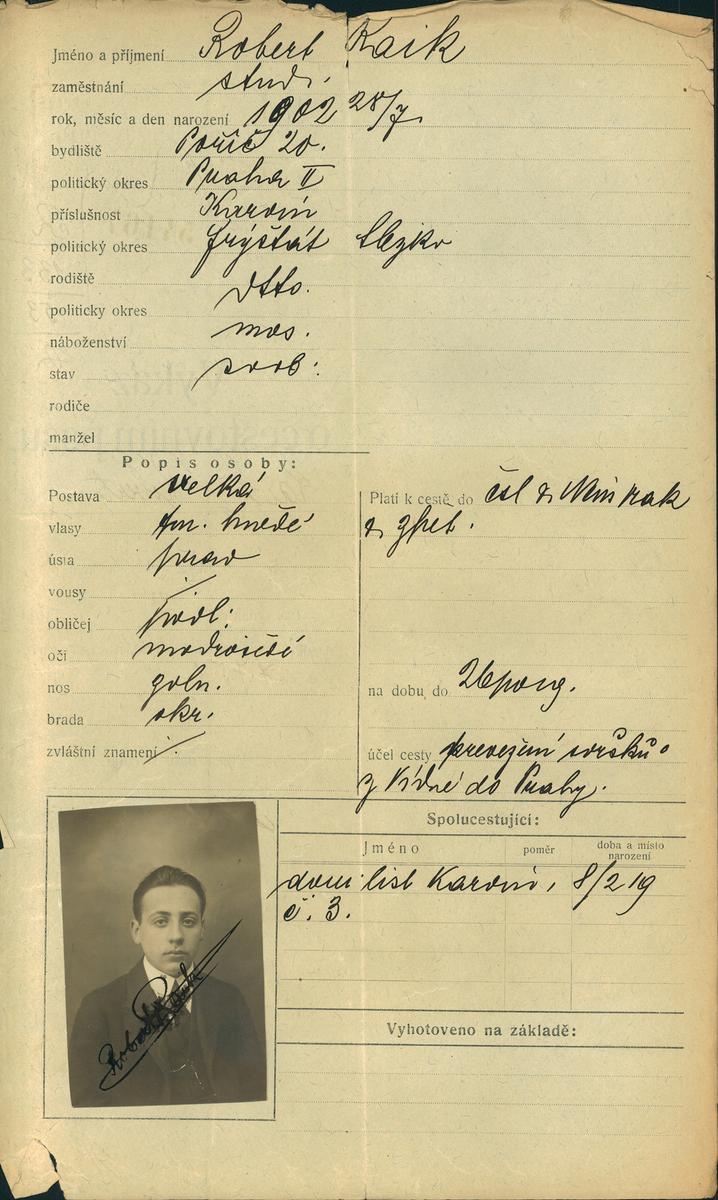 Jméno a příjmení Robert Raik
zaměstnání stud.
rok, měsíc a den narození 1902 28/7.
bydliště Poříč 20.
politický okres Praha II
příslušnost Karvín
politický okres Frýštát Slezko
rodiště dtto.
politický okres
náboženství mos.
stav svob.
rodiče
manžel
Popis osoby:
Postava velká
vlasy tm. hnědé
ústa prav
vousy /
obličej podl.
oči modrošedé
nos
brada okr.
zvláštní znamení /.
Platí k cestě do čsl & Něm rak
& zpět.
na dobu do
účel cesty převezení svršků
z Vídně do Prahy.
Spolucestující:
Jméno poměr doba a místo
narození
dom list Karvín, 8/2 19
č. 3.
Vyhotoveno na základě:
Robert Raik